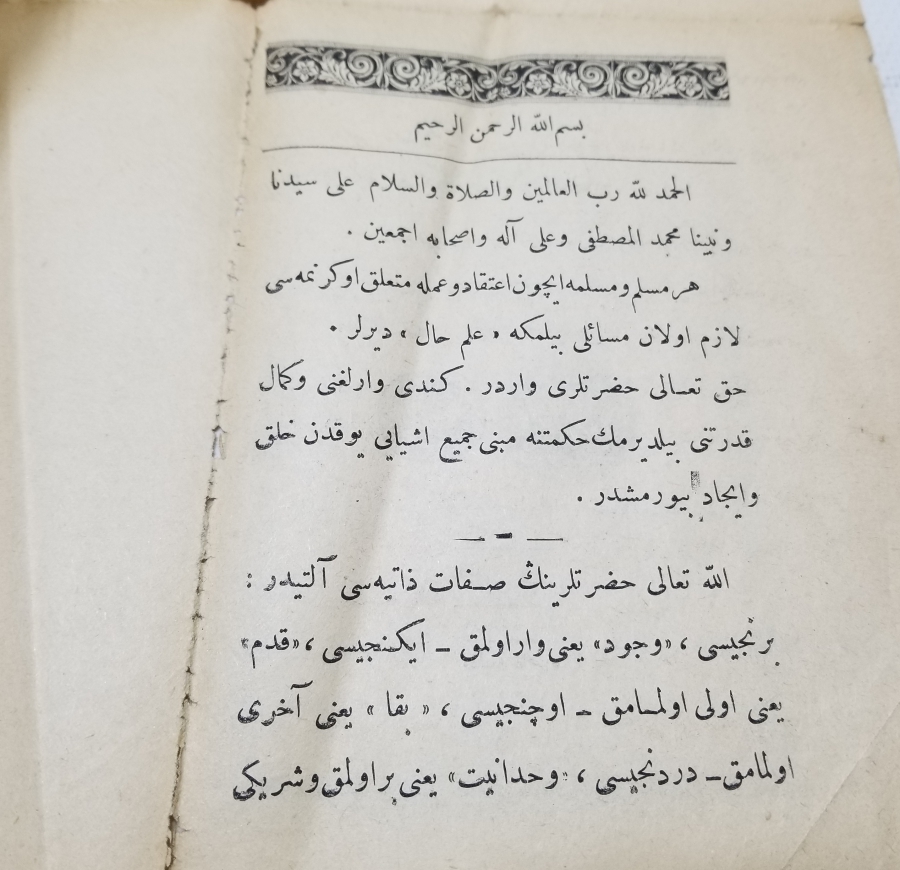 بسم الله الرحمن الرحيم
الحمد لله رب العالمين والصلاة والسلام على سيدنا
ونبينا محمد المصطفى وعلى آله واصحابه اجمعين .
هر مسلم و مسلمه ايچون اعتقاد و عمله متعلق اوكرنمه سى
لازم اولان مسائلى بيلمكه « علم حال » ديرلر .
حق تعالى حضرتلرى واردر . كندى وارلغنى وكمال
قدرتنى بيلديرمك حكمتنه مبنى جميع اشيايى يوقدن خلق
وايجاد بيورمشدر .
الله تعالى حضرتلرينڭ صفات ذاتيه سى آلتيدر :
برنجيسى ، «وجود» يعنى وار اولمق ــ ايكنجيسى ، «قدم»
يعنى اولى اولمامق ــ اوچنجيسى ، « بقا » يعنى آخرى
اولمامق ــ دردنجيسى ، «وحدانيت» يعنى بر اولمق و شريكى